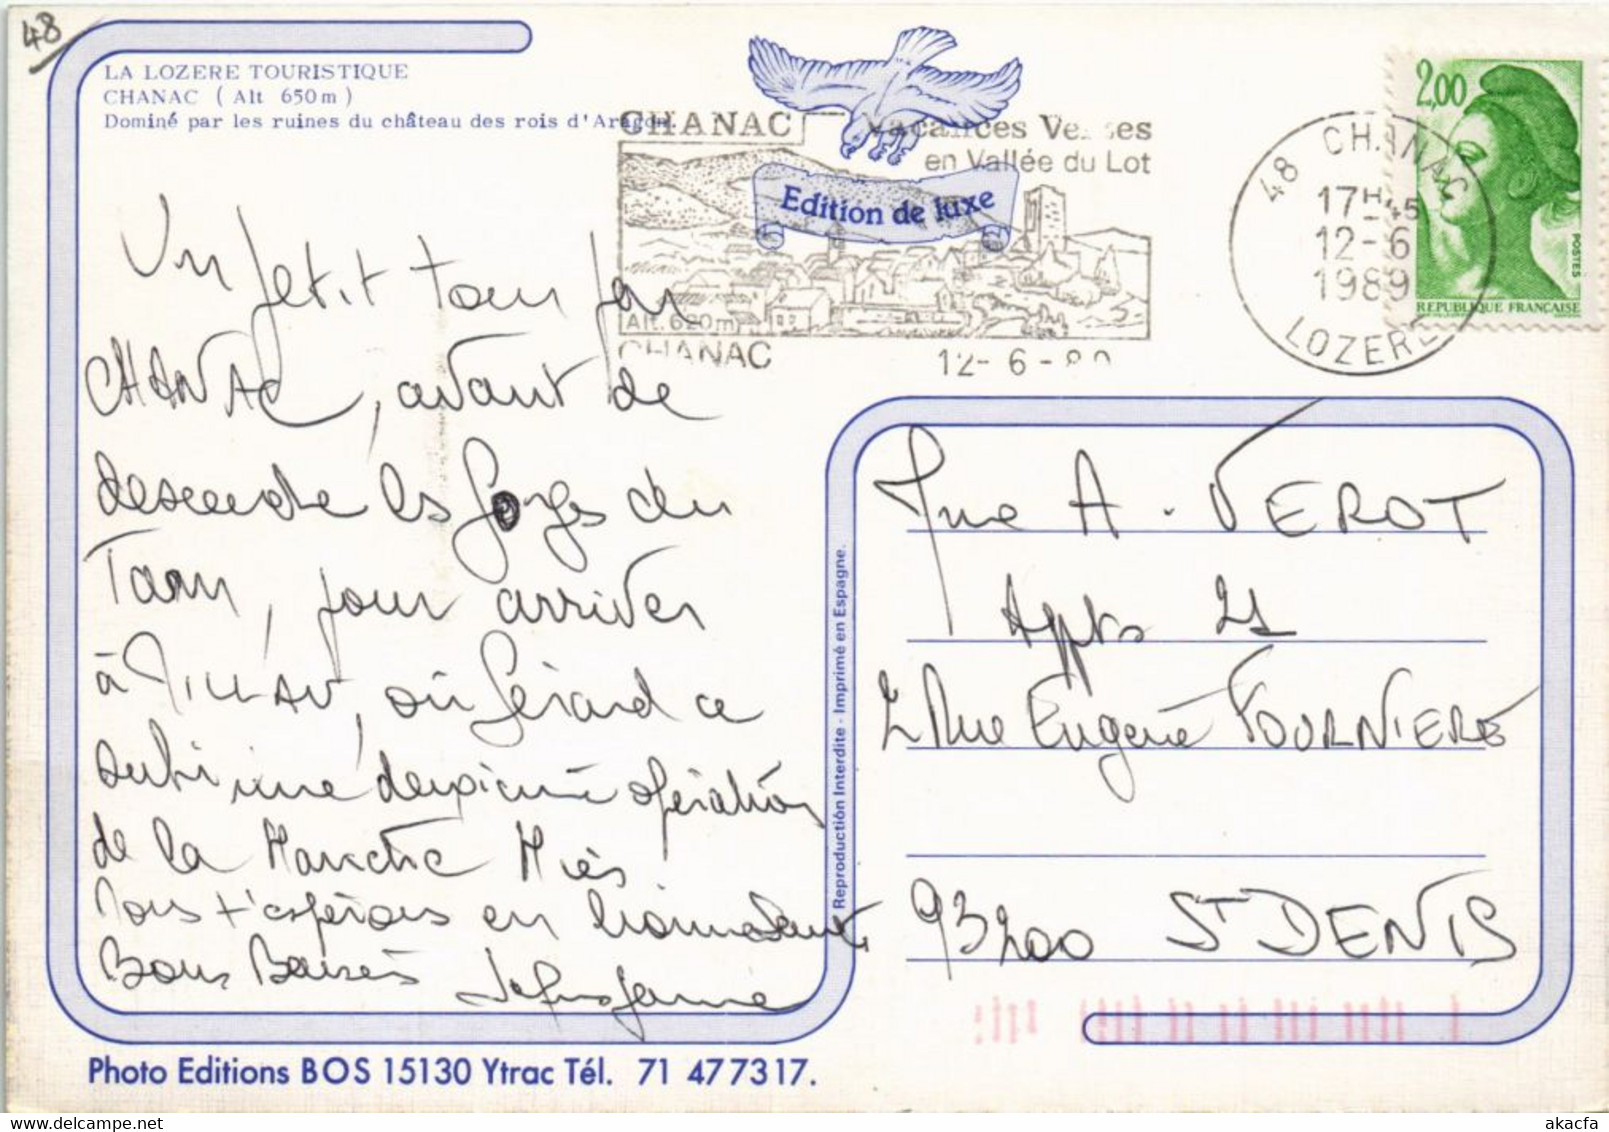 48
LA LOZERE TOURISTIQUE
CHANAC ( Alt 650m )
Dominé par les ruines du château des rois d'Aragon
CHANAC
Vacances Vertes
en Vallée du Lot
Edition de luxe
Alt. 620m
CHANAC
12-6-89
48 CHANAC
17H45
12-6
1989
LOZERE
2,00
POSTES
REPUBLIQUE FRANÇAISE
Un petit tour par
CHANAC, avant de
descendre les gorges du
Tarn, pour arriver
à MILLAU, où Gérard a
subi une deuxième opération
de la Hanche Hier
Nous t'espérons en
Bons Baisers
Mme A. VEROT
Appts 21
2 Rue Eugène FOURNIERE
93200 ST DENIS
Reproduction Interdite - Imprimé en Espagne.
Photo Editions BOS 15130 Ytrac Tél. 71 47 73 17.
akacfa